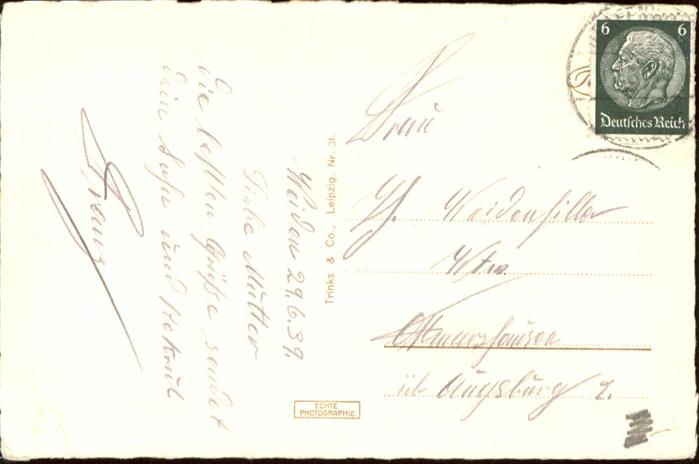 6 6
Deutsches Reich
Weiden 29.6.39.
Liebe Mutter
die besten Grüße sendet
dein Sohn und Rekrut
Franz
Trinks & Co., Leipzig. Nr. 31.
ECHTE
PHOTOGRAPHIE
Frau
Weidenhiller
Wtw.
Ottmarshausen
üb. Augsburg 2.